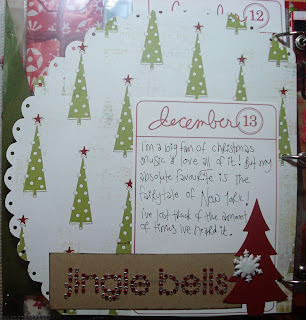 12
december 13
I'm a big fan of christmas
music & love all of it! But my
absolute favourite is The
fairytale of New York!
I've lost track of the amount
of times I've heard it.
jingle bells